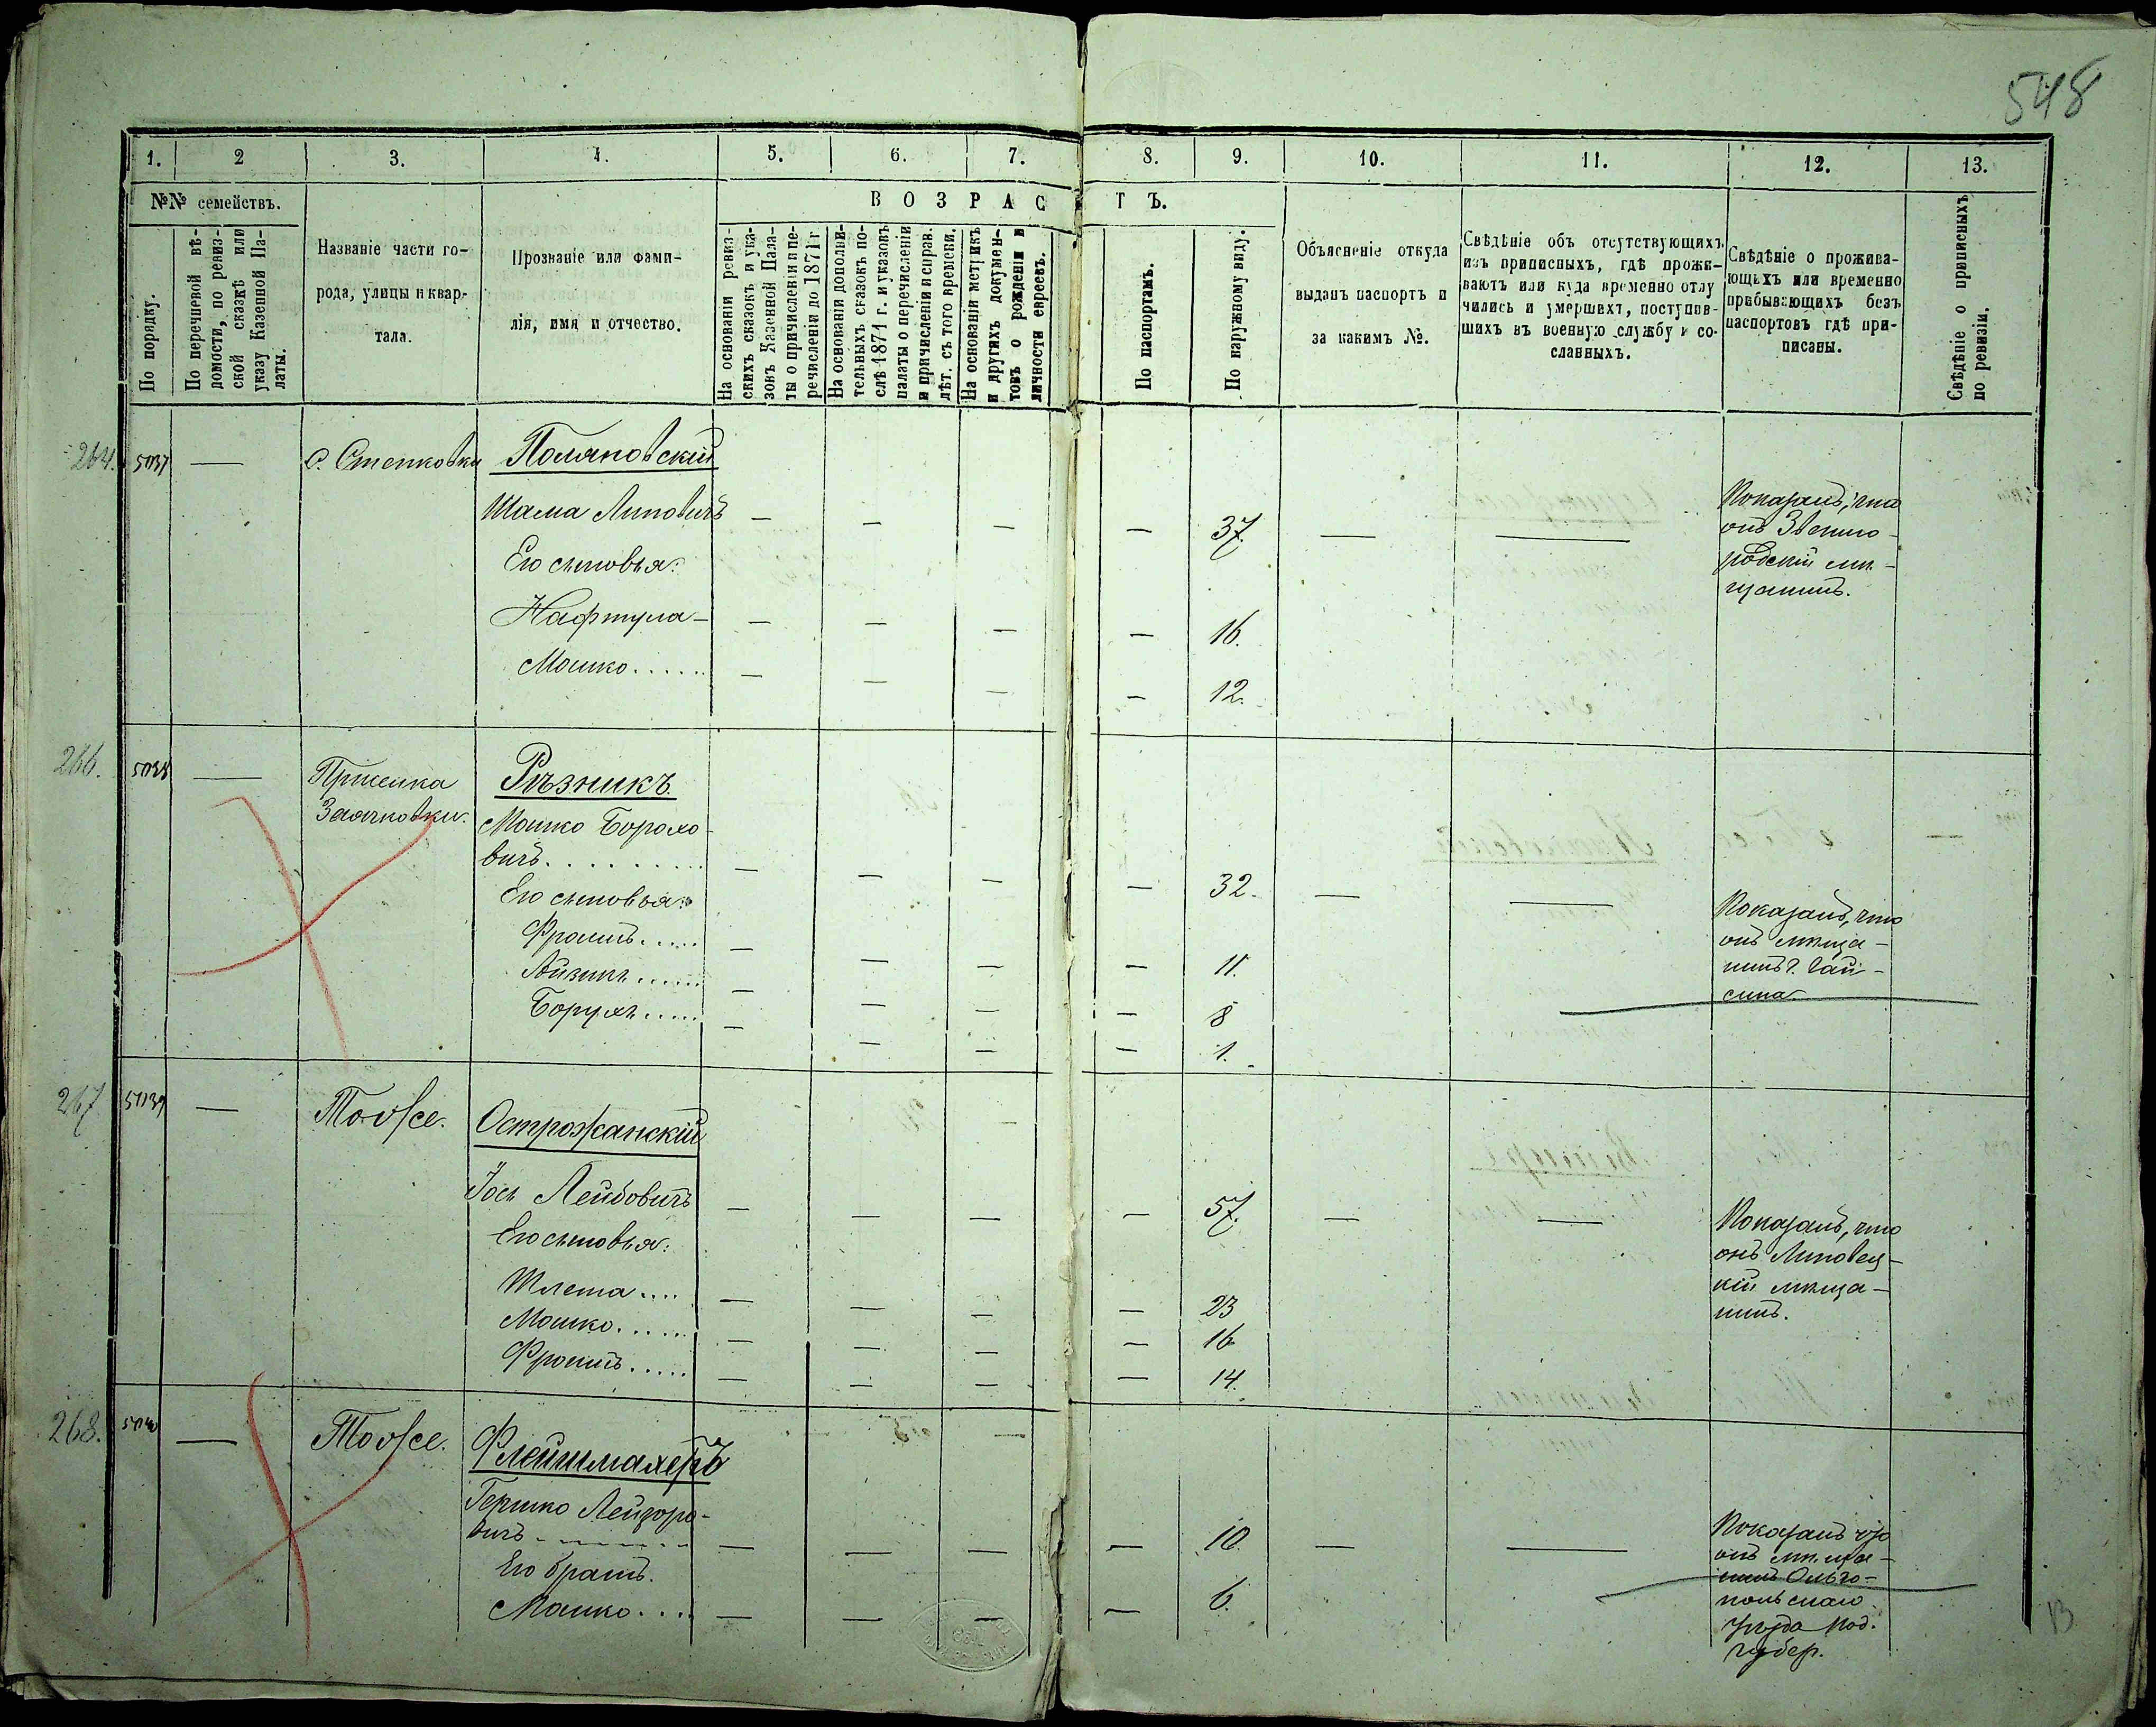 548
1. 2 3. 4. 5. 6. 7. 8. 9. 10. 11. 12. 13.
№№ семействъ.
По порядку.
По перечневой вѣ-
домости, по ревиз-
ской сказкѣ или
указу Казенной Па-
латы.
Названіе части го-
рода, улицы и квар-
тала.
Прозваніе или фами-
лія, имя и отчество.
ВОЗРАСТЪ.
На основаніи ревиз-
скихъ сказокъ и ука-
зовъ Казенной Пала-
ты о причисленіи и пе-
речисленіи до 1871 г.
На основаніи дополни-
тельныхъ сказокъ по-
слѣ 1871 г. и указовъ
палаты о перечисленіи
и причисленіи и справ.
лѣт. съ того времени.
На основаніи метрикъ
и другихъ докумен-
товъ о рожденіи и
личности евреевъ.
По паспортамъ.
По наружному виду.
Объясненіе откуда
выданъ паспортъ и
за какимъ №.
Свѣдѣніе объ отсутствующихъ
изъ приписныхъ, гдѣ прожи-
ваютъ или куда временно отлу
чились и умершихъ, поступив-
шихъ въ военную службу и со-
сланныхъ.
Свѣдѣніе о прожива-
ющихъ или временно
пребывающихъ безъ
паспортовъ гдѣ при-
писаны.
Свѣдѣніе о приписныхъ
по ревизіи.
264. 5037 — с. Степковки Поляновскій
Шама Липовичъ — — — — 37. — — Показалъ, что
онъ Звенино-
родскій мѣ-
щанинъ.
Его сыновья:
Нафтула — — — — — 16.
Мошко...... — — — — 12.
266. 5038 — Пришейка
Заячковки.
Рѣзникъ
Мошко Борохо-
вичъ......... — — — — 32. — —
Показалъ, что
онъ мѣща-
нинъ г. Гай-
сина
Его сыновья:
Фроимъ..... — — — — 11.
Айзикъ...... — — — — 8
Борухъ..... — — — — 1.
267 5039 — Тоже. Острожанскій
Іось Лейбовичъ — — — — 57. — — Показалъ, что
онъ Липовец-
кій мѣща-
нинъ.
Его сыновья:
Шлема.... — — — — 23
Мошко...... — — — — 16
Фроимъ..... — — — — 14.
268. 5040 — Тоже. Флейшмахеръ
Гершко Лейзоро-
вичъ — — — — 10. — —
Показалъ что
онъ мѣща-
нинъ Ольго-
польскаго
уѣзда Под.
губер.
Его братъ.
Мошко.... — — — — 6.
13